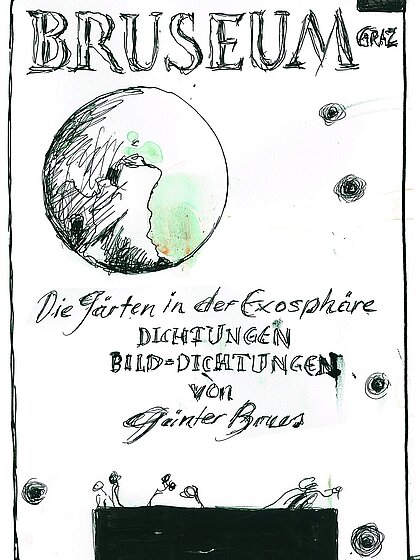 BRUSEUM GRAZ
Die Gärten in der Exosphäre
DICHTUNGEN
BILD=DICHTUNGEN
von
Günter Brus